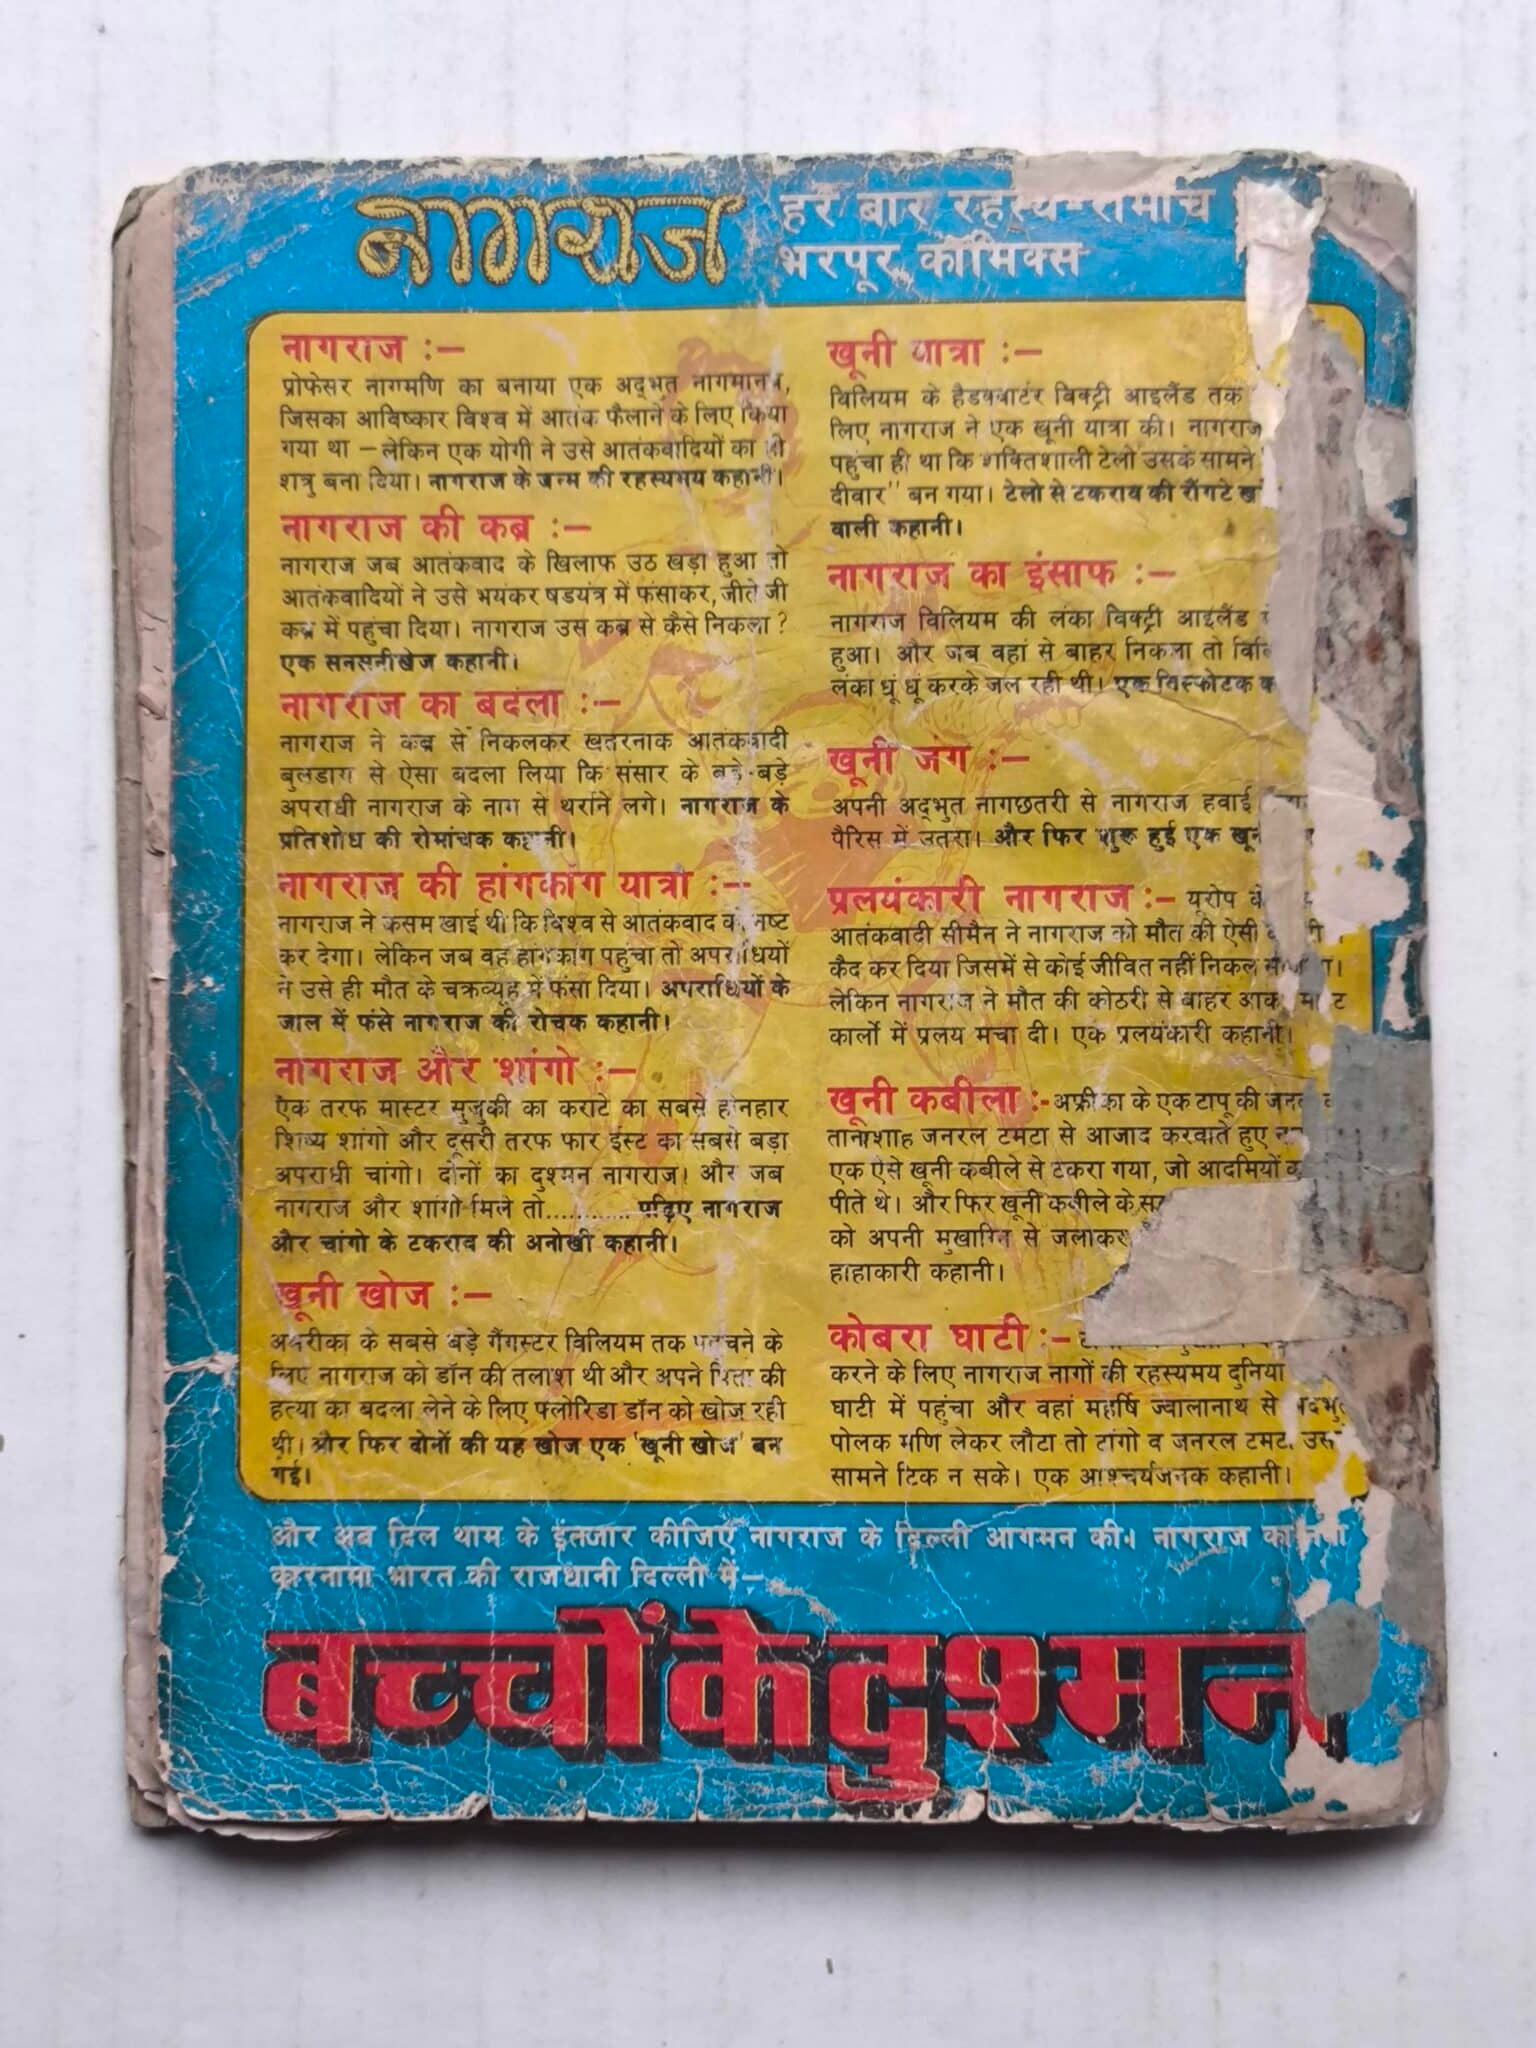 नागराज
हर बार रहस्य-रोमांच
भरपूर कॉमिक्स
नागराज :—
प्रोफेसर नागमणि का बनाया एक अद्भुत नागमानव,
जिसका आविष्कार विश्व में आतंक फैलाने के लिए किया
गया था — लेकिन एक योगी ने उसे आतंकवादियों का ही
शत्रु बना दिया। नागराज के जन्म की रहस्यमय कहानी।
नागराज की कब्र :—
नागराज जब आतंकवाद के खिलाफ उठ खड़ा हुआ तो
आतंकवादियों ने उसे भयंकर षडयंत्र में फंसाकर, जीते जी
कब्र में पहुंचा दिया। नागराज उस कब्र से कैसे निकला ?
एक सनसनीखेज कहानी।
नागराज का बदला :—
नागराज ने कब्र से निकलकर खतरनाक आतंकवादी
बुलडाग से ऐसा बदला लिया कि संसार के बड़े-बड़े
अपराधी नागराज के नाग से थर्राने लगे। नागराज के
प्रतिशोध की रोमांचक कहानी।
नागराज की हांगकांग यात्रा :—
नागराज ने कसम खाई थी कि विश्व से आतंकवाद को नष्ट
कर देगा। लेकिन जब वह हांगकांग पहुंचा तो अपराधियों
ने उसे ही मौत के चक्रव्यूह में फंसा दिया। अपराधियों के
जाल में फंसे नागराज की रोचक कहानी।
नागराज और शांगो :—
एक तरफ मास्टर सुजुकी का कराटे का सबसे होनहार
शिष्य शांगो और दूसरी तरफ फार ईस्ट का सबसे बड़ा
अपराधी चांगो। दोनों का दुश्मन नागराज। और जब
नागराज और शांगो मिले तो............ पढ़िए नागराज
और चांगो के टकराव की अनोखी कहानी।
खूनी खोज :—
अमरीका के सबसे बड़े गैंगस्टर विलियम तक पहुंचने के
लिए नागराज को डॉन की तलाश थी और अपने पिता की
हत्या का बदला लेने के लिए फ्लोरिडा डॉन को खोज रही
थी। और फिर दोनों की यह खोज एक 'खूनी खोज' बन
गई।
खूनी यात्रा :—
विलियम के हैडक्वार्टर विक्ट्री आइलैंड तक
लिए नागराज ने एक खूनी यात्रा की। नागराज
पहुंचा ही था कि शक्तिशाली टेलो उसके सामने
दीवार'' बन गया। टेलो से टकराव की रौंगटे
वाली कहानी।
नागराज का इंसाफ :—
नागराज विलियम की लंका विक्ट्री आइलैंड
हुआ। और जब वहां से बाहर निकला तो
लंका धूं धूं करके जल रही थी। एक विस्फोटक
खूनी जंग :—
अपनी अद्भुत नागछतरी से नागराज हवाई
पैरिस में उतरा। और फिर शुरू हुई एक
प्रलयंकारी नागराज :— यूरोप
आतंकवादी सीमैन ने नागराज को मौत की ऐसी
कैद कर दिया जिसमें से कोई जीवित नहीं निकल
लेकिन नागराज ने मौत की कोठरी से बाहर
कार्लो में प्रलय मचा दी। एक प्रलयंकारी कहानी।
खूनी कबीला :- अफ्रीका के एक टापू की
तानाशाह जनरल टमटा से आजाद करवाते हुए
एक ऐसे खूनी कबीले से टकरा गया, जो आदमियों
पीते थे। और फिर खूनी कबीले के
को अपनी मुखाग्नि से जलाकर
हाहाकारी कहानी।
कोबरा घाटी :—
करने के लिए नागराज नागों की रहस्यमय दुनिया
घाटी में पहुंचा और वहां महर्षि ज्वालानाथ से
पोलक मणि लेकर लौटा तो टांगो व जनरल टमटा
सामने टिक न सके। एक आश्चर्यजनक कहानी।
और अब दिल थाम के इंतजार कीजिए नागराज के दिल्ली आगमन की। नागराज का
कारनामा भारत की राजधानी दिल्ली में—
बच्चों के दुश्मन